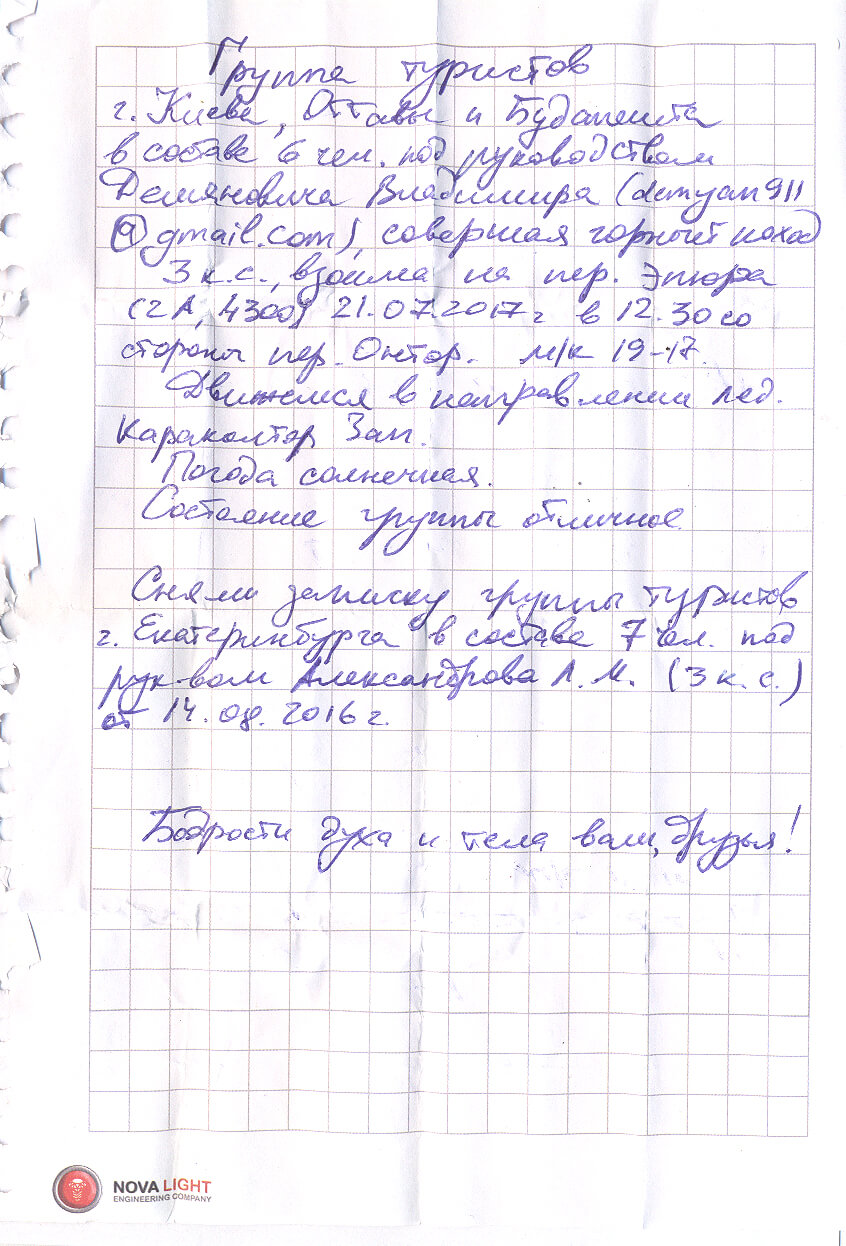 Группа туристов
г. Киева, Оттавы и Будапешта
в составе 6 чел. под руководством
Демяновича Владимира (demyan911
@gmail.com), совершая горный поход
3 к.с., взошла на пер. Эпюра
(2А, 4300) 21.07.2017г в 12.30 со
стороны пер. Онтор. м/к 19-17.
Движемся в направлении лед.
Караколтор Зап.
Погода солнечная.
Состояние группы отличное
Сняли записку группы туристов
г. Екатеринбурга в составе 7 чел. под
рук-вом Александрова А.М. (3 к.с.)
от 14.08.2016г.
Бодрости духа и тела вам, друзья!
NOVA LIGHT
ENGINEERING COMPANY